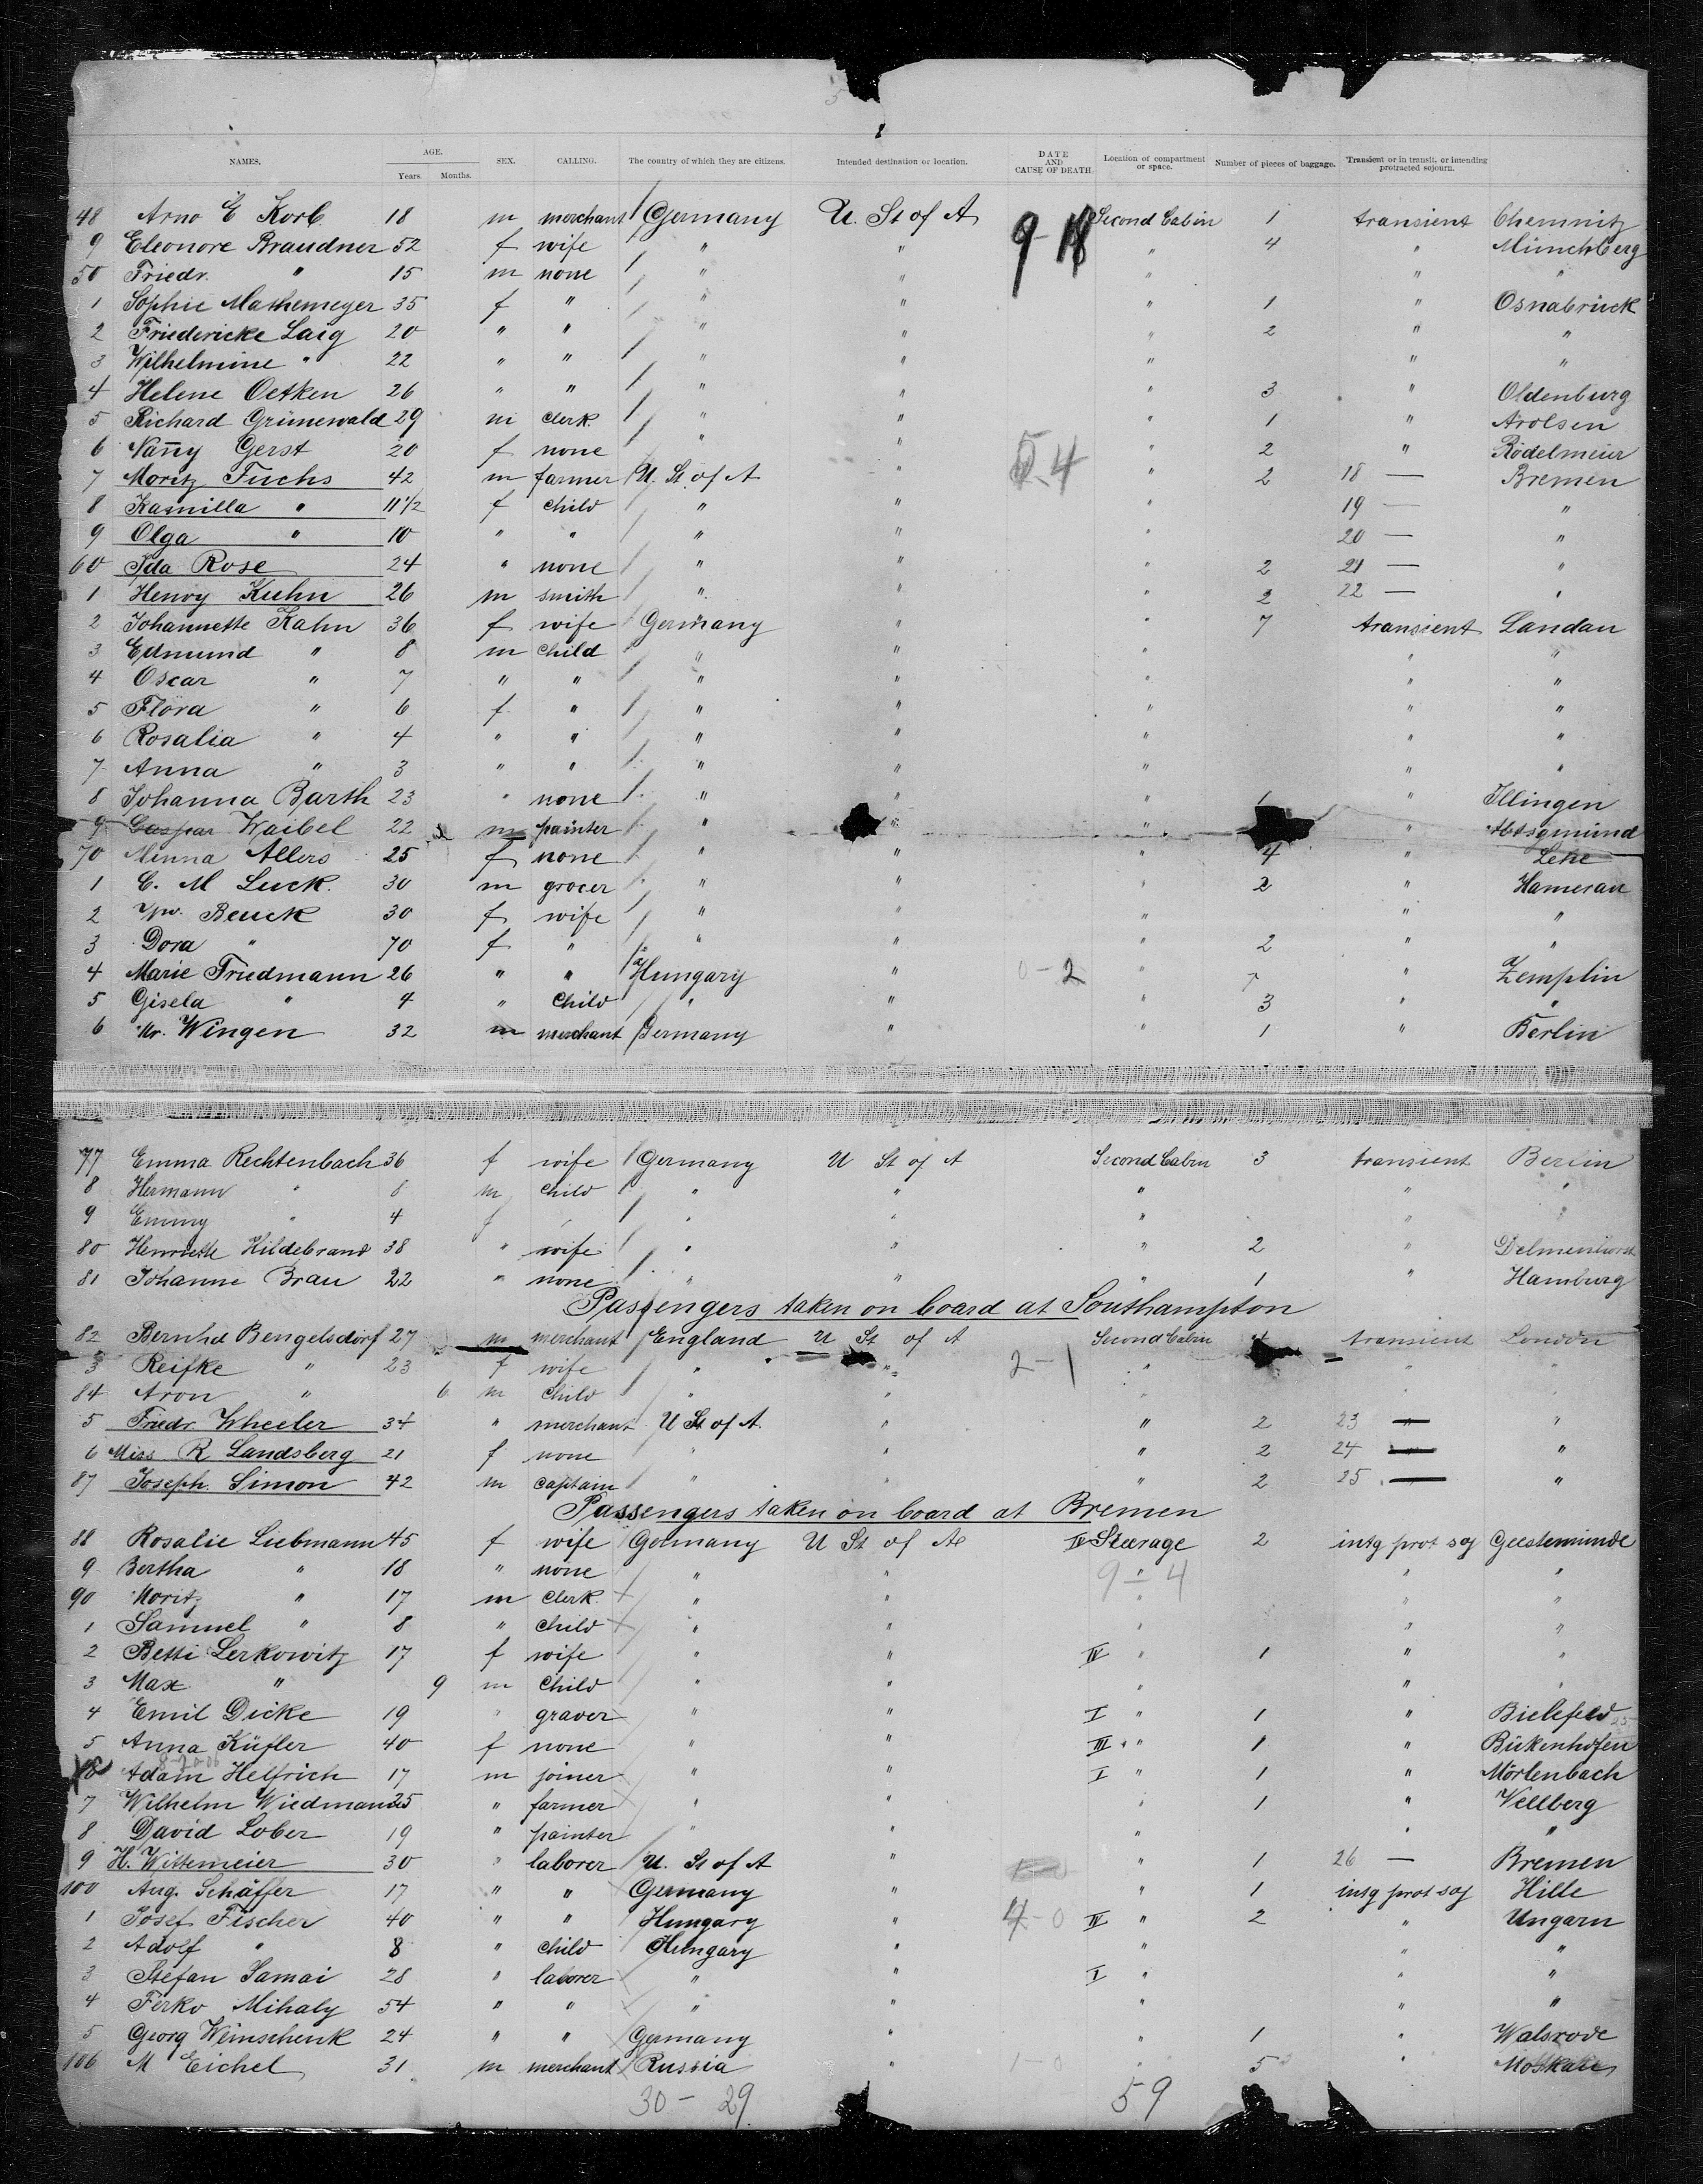 NAMES. AGE. Years. Months. SEX. CALLING. The country of which they are citizens. Intended destination or location. DATE AND CAUSE OF DEATH. Location of compartment or space. Number of pieces of baggage. Transient or in transit, or intending protracted sojourn.
48 Arno E Korb 18 m merchant Germany U. St of A 9-18 Second Cabin 1 transient Chemnitz
9 Eleonore Braudner 52 f wife " " " 4 " Münchberg
50 Friedr. " 15 m none " " " " "
1 Sophie Mathemeyer 35 f " " " " 1 " Osnabrück
2 Friedericke Laig 20 " " " " " 2 " "
3 Wilhelmine " 22 " " " " " " "
4 Helene Oetken 26 " " " " " 3 " Oldenburg
5 Richard Grünewald 29 m clerk " " " 1 " Arolsen
6 Nanny Gerst 20 f none " " " 2 " Rödelmeier
7 Moritz Fuchs 42 m farmer U. St. of A " 5-4 " 2 18 — Bremen
8 Kamilla " 11½ f child " " " 19 — "
9 Olga " 10 " " " " " 20 — "
60 Ida Rose 24 " none " " " 2 21 — "
1 Henry Kuhn 26 m smith " " " 2 22 — "
2 Johannette Kahn 36 f wife Germany " " 7 transient Landau
3 Edmund " 8 m child " " " " "
4 Oscar " 7 " " " " " " "
5 Flora " 6 f " " " " " "
6 Rosalia " 4 " " " " " " "
7 Anna " 3 " " " " " " "
8 Johanna Barth 23 " none " " " 1 " Illingen
9 Caspar Waibel 22 m painter " " " " Abtsgmünd
70 Minna Allers 25 f none " " " 4 " Lehe
1 C. M Luck. 30 m grocer " " " 2 " Hamerau
2 Beuck 30 f wife " " " " "
3 Dora " 70 f " " " " 2 " "
4 Marie Friedmann 26 " " Hungary " 0-2 " 7 " Zemplin
5 Gisela " 4 " Child " " " 3 " "
6 Mr. Wingen 32 m merchant Germany " " 1 " Berlin
77 Emma Rechtenbach 36 f wife Germany U St of A Second Cabin 3 transient Berlin
8 Hermann " 8 m child " " " " "
9 Emmy " 4 f " " " " " "
80 Henriette Hildebrand 38 " wife " " " 2 " Delmenhorst
81 Johanne Brau 22 " none " " " 1 " Hamburg
Passengers taken on board at Southampton
82 Bernhd Bengelsdorf 27 m merchant England U St of A Second Cabin 4 transient London
3 Reifke " 23 f wife " " 2-1 " " "
84 Aron " 6 m child " " " " "
5 Friedr Wheeler 34 " merchant U St of A " " 2 23 — "
6 Miss R Landsberg 21 f none " " " 2 24 — "
87 Joseph Simon 42 m captain " " " 2 25 — "
Passengers taken on board at Bremen
88 Rosalie Liebmann 45 f wife Germany U St of A IV Steerage 2 intg prot soj Geestemünde
9 Bertha " 18 " none " " " 9-4 " "
90 Moritz " 17 m clerk " " " " "
1 Samuel " 8 " child " " " " "
2 Betti Lerkowitz 17 f wife " " IV " 1 " "
3 Max " 9 m Child " " " " "
4 Emil Dicke 19 " graver " " I " 1 " Bielefeld
5 Anna Küfler 40 f none " " III " 1 " Bückenhofen
Adam Helfrich 17 m joiner " " I " 1 " Mörlenbach
7 Wilhelm Wiedmann 25 " farmer " " " 1 " Vellberg
8 David Lober 19 " painter " " " " "
9 H. Wittemeier 30 " laborer U. St of A " " 1 26 — Bremen
100 Aug. Schäffer 17 " " Germany " " 1 intg prot soj Hille
1 Josef Fischer 40 " " Hungary " 4-0 IV " 2 " Ungarn
2 Adolf " 8 " child Hungary " " " "
3 Stefan Samai 28 " laborer " " I " " "
4 Ferko Mihaly 54 " " " " " " "
5 Georg Weinschenk 24 " " Germany " " 1 " Walsrode
106 M Eichel 31 m merchant Russia " 1-0 " 5 " Moskau
30 - 29 59